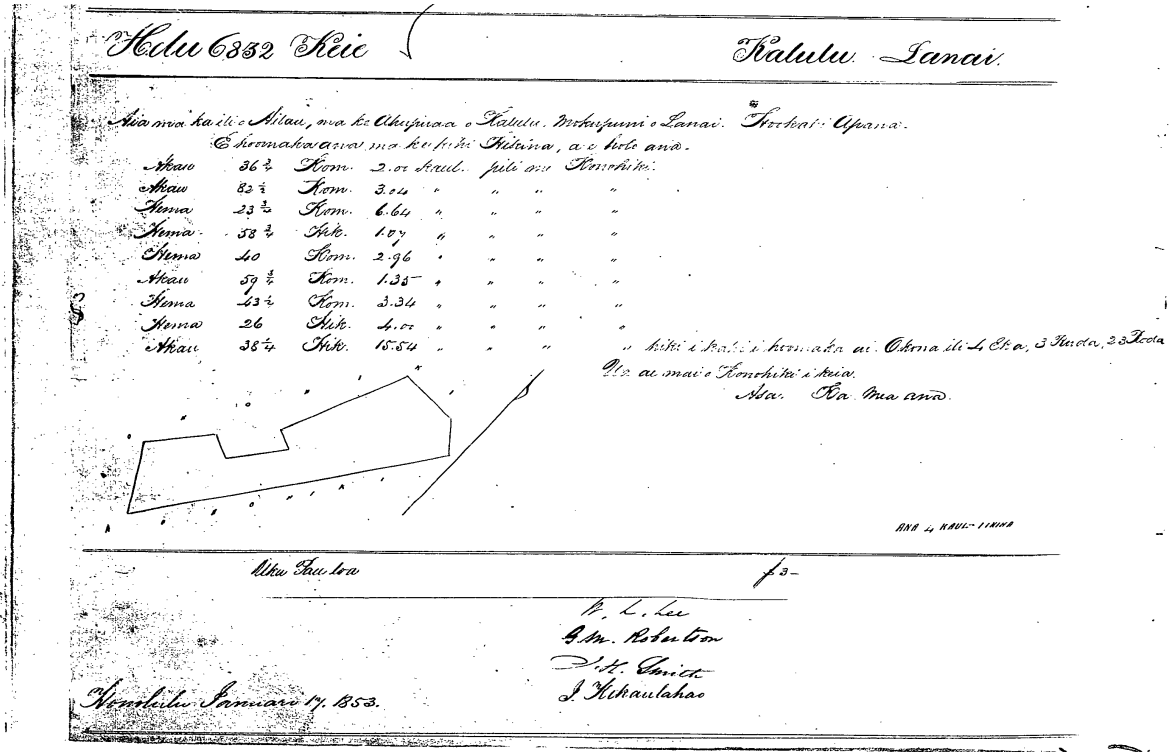 Helu 6832 Keie Kalulu. Lanai.
Aia ma ka ili o Ailau, ma ke Ahupuaa o Kalulu. Mokupuni o Lanai. Hookahi Apana.
E hoomaka ana ma ke kihi Hikina, a e holo ana.
Akau 36 3/4 Kom. 2.00 kaul. pili me Konohiki.
Akau 82 1/2 Kom. 3.04 " " " "
Hema 23 3/4 Kom. 6.64 " " " "
Hema 58 3/4 Hik. 1.07 " " " "
Hema 40 Kom. 2.96 " " " "
Akau 59 3/4 Kom. 1.35 " " " "
Hema 43 1/2 Kom. 3.34 " " " "
Hema 26 Hik. 4.00 " " " "
Akau 38 1/4 Hik. 15.54 " " " " hiki i kahi i hoomaka ai. Okona ili 4 Eka, 3 Ruda, 23 Roda
Ua ae mai o Konohiki i keia.
Asa. Ka Mea ana.
KONOHIKI
KONOHIKI
A
ANA 4 KAUL = 1 INIHA
Uku Pau loa $3-
W. L. Lee
G. M. Robertson
J. H. Smith
J. Kekaulahao
Honolulu Ianuari 17. 1853.